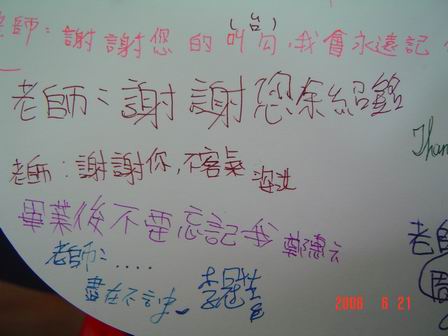 (台)
老師：謝謝您的叫勾,我會永遠記
老師：謝謝您余紹銘
老師：謝謝你,不客氣
Than
畢業後不要忘記我 鄭惠云
老師
老師：.....
盡在不言中
2006 6 21